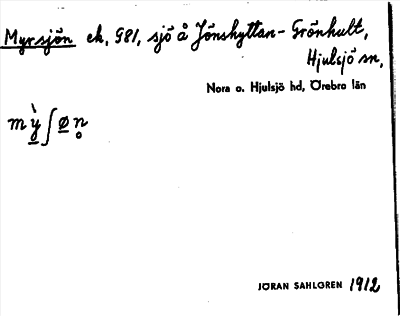 Myrsjön ek. 981, sjö å Jönshyttan-Grönhult,
Hjulsjö sn,
Nora o. Hjulsjö hd, Örebro län
mỳʃøn̥
JÖRAN SAHLGREN 1912